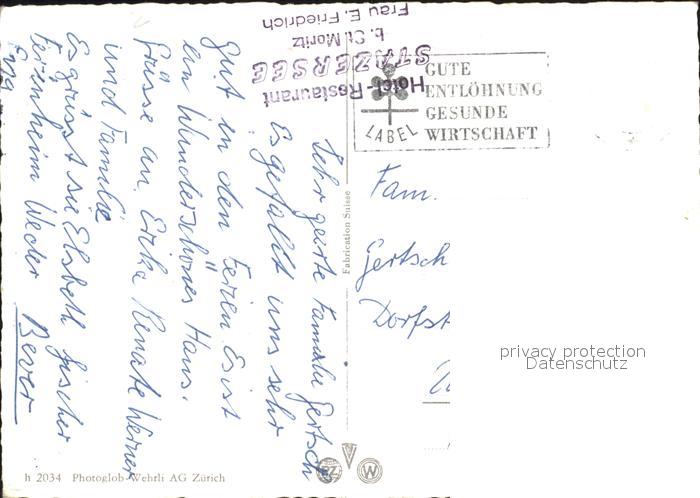 Hotel-Restaurant
STAZERSEE
b. St. Moritz
Frau E. Friedrich
GUTE
ENTLÖHNUNG
GESUNDE
WIRTSCHAFT
LABEL
Sehr geerte Familie Gertsch
Es gefällt uns sehr
gut in den Ferien Es ist
ein Wunderschönes Haus.
Grüsse an Erika Renate Werner
und Familie
Es grüsst sie Elsbeth Fischer
Ferienheim Weder Bever
Enga
Fabrication Suisse
Fam.
Gertsch
Dorfst
privacy protection
Datenschutz
h 2034 Photoglob-Wehrli AG Zürich
PZ
W